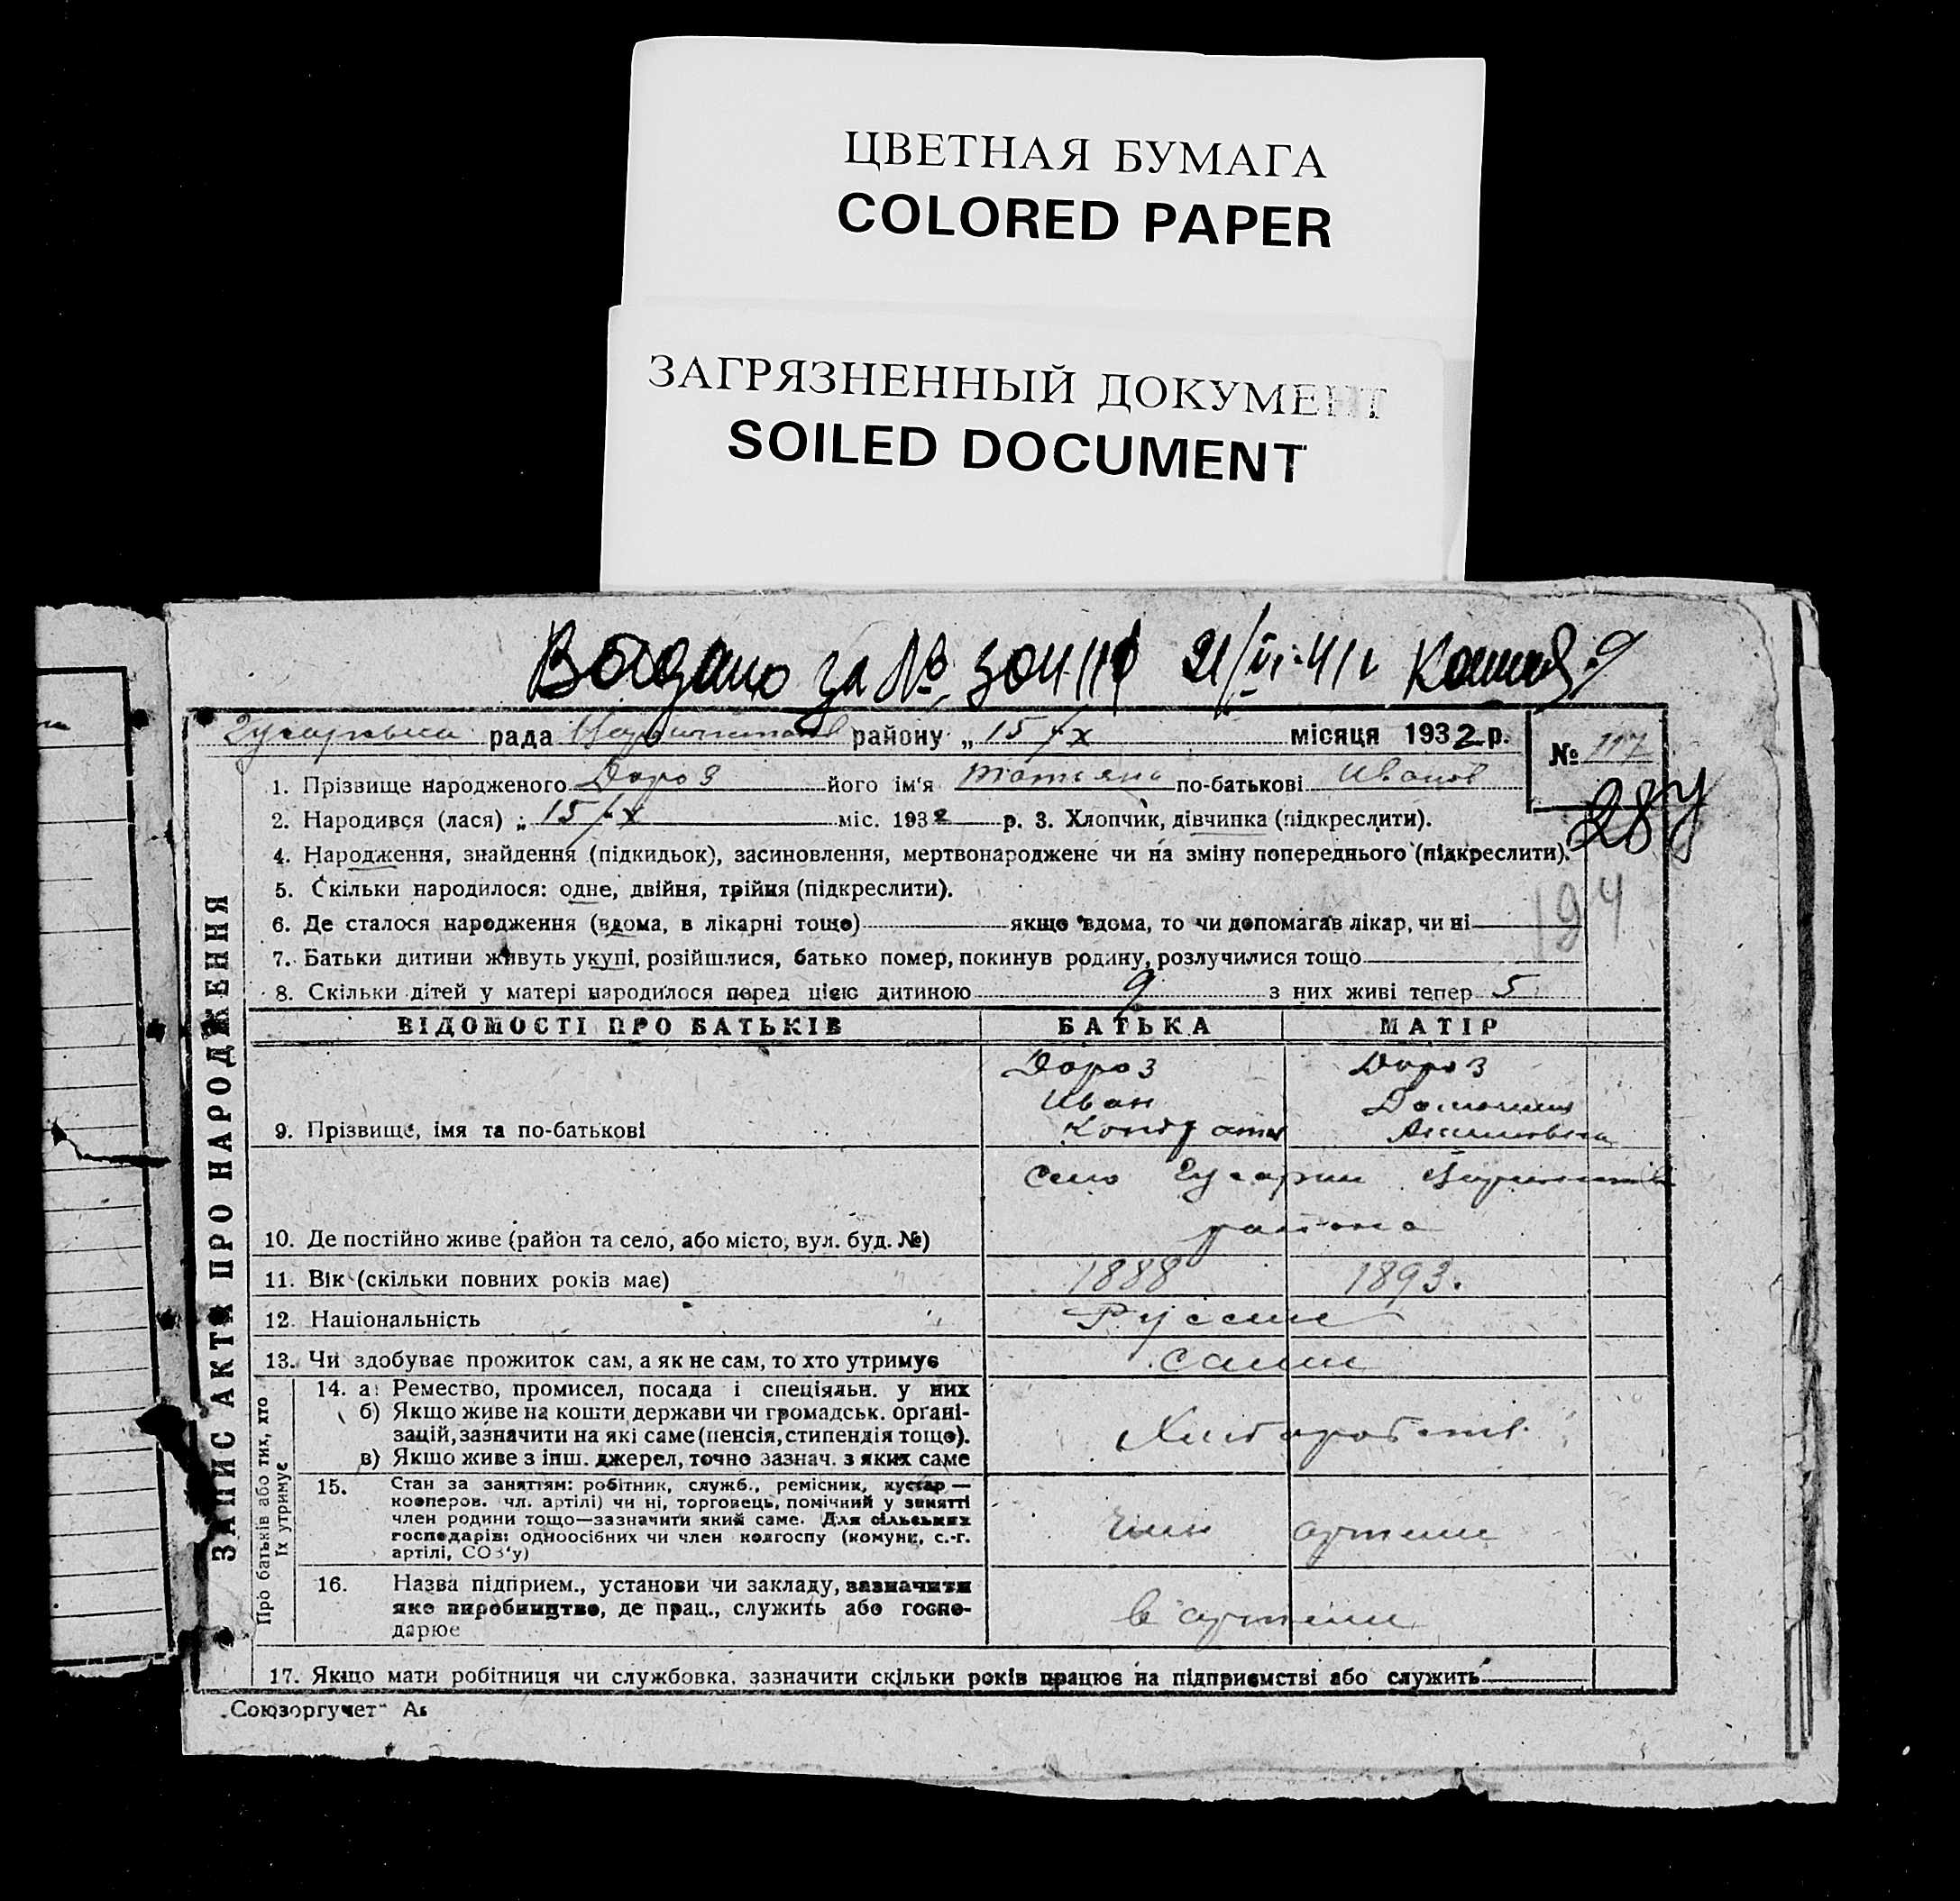 ЦВЕТНАЯ БУМАГА
COLORED PAPER
ЗАГРЯЗНЕННЫЙ ДОКУМЕНТ
SOILED DOCUMENT
за №
рада району „ 15 / х місяця 1932 р. № 117
1. Прізвище народженого Дороз його ім'я Татьяна по-батькові Иванов
284
2. Народився (лася) „ 15 / х міс. 1932 р. 3. Хлопчик, дівчинка (підкреслити).
4. Народження, знайдення (підкидьок), засиновлення, мертвонароджене чи на зміну попереднього (підкреслити).
5. Скільки народилося: одне, двійня, трійня (підкреслити).
194
6. Де сталося народження (вдома, в лікарні тощо) якщо вдома, то чи допомагав лікар, чи ні
7. Батьки дитини живуть укупі, розійшлися, батько помер, покинув родину, розлучилися тощо
8. Скільки дітей у матері народилося перед цією дитиною 9 з них живі тепер 5
ЗАПИС АКТА ПРО НАРОДЖЕННЯ
ВІДОМОСТІ ПРО БАТЬКІВ БАТЬКА МАТІР
Дороз Дороз
Иван
9. Прізвище, імя та по-батькові
село
района
10. Де постійно живе (район та село, або місто, вул. буд. №)
11. Вік (скільки повних років має) 1888 1893.
12. Національність Русские
13. Чи здобуває прожиток сам, а як не сам, то хто утримує сами
Про батьків або тих, хто
їх утримує
14. а) Ремество, промисел, посада і спеціяльн. у них
б) Якщо живе на кошти держави чи громадськ. органі-
зацій, зазначити на які саме (пенсія, стипендія тощо).
в) Якщо живе з інш. джерел, точно зазнач. з яких саме
15. Стан за заняттям: робітник, служб., ремісник, кустар —
кооперов. чл. артілі) чи ні, торговець, помічний у занятті
член родини тощо—зазначити який саме. Для сільських
господарів: одноосібних чи член колгоспу (комуни, с.-г.
артілі, СОЗ'у)
член артели
16. Назва підприєм., установи чи закладу, зазначити
яке виробництво, де прац., служить або госпо-
дарює
в артели
17. Якщо мати робітниця чи службовка, зазначити скільки років працює на підприємстві або служить
„Союзоргучет"